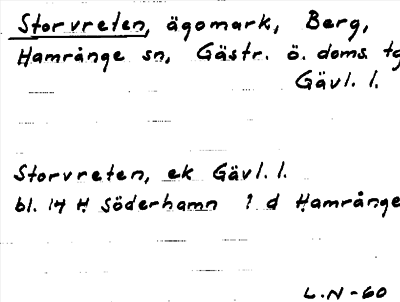 Storvreten, ägomark, Berg,
Hamrånge sn, Gästr. ö. doms. tg
Gävl. l.
Storvreten, ek Gävl. l.
bl. 14 H Söderhamn 1 d Hamrånge
L.N-60